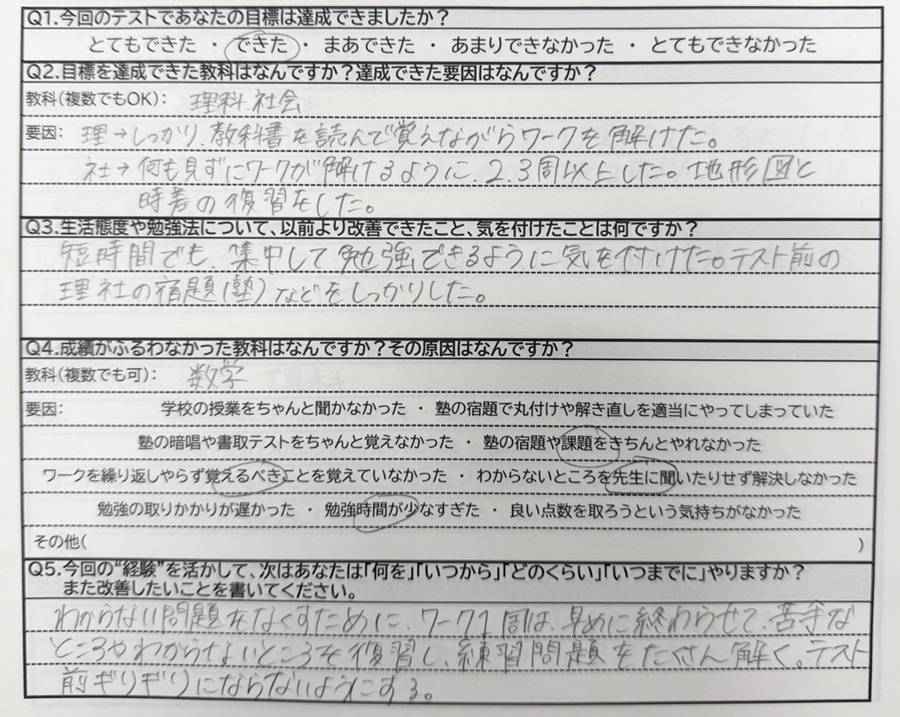 Q1.今回のテストであなたの目標は達成できましたか？
とてもできた ・ できた ・ まあできた ・ あまりできなかった ・ とてもできなかった
Q2.目標を達成できた教科はなんですか？達成できた要因はなんですか？
教科(複数でもOK)： 理科、社会
要因： 理→しっかり、教科書を読んで覚えながらワークを解けた。
社→何も見ずにワークが解けるように、2、3周以上した。地形図と
時差の復習をした。
Q3.生活態度や勉強法について、以前より改善できたこと、気を付けたことは何ですか？
短時間でも、集中して勉強できるように気を付けた。テスト前の
理社の宿題(塾)などをしっかりした。
Q4.成績がふるわなかった教科はなんですか？その原因はなんですか？
教科(複数でも可)： 数学
要因： 学校の授業をちゃんと聞かなかった ・ 塾の宿題で丸付けや解き直しを適当にやってしまっていた
塾の暗唱や書取テストをちゃんと覚えなかった ・ 塾の宿題や課題をきちんとやれなかった
ワークを繰り返しやらず覚えるべきことを覚えていなかった ・ わからないところを先生に聞いたりせず解決しなかった
勉強の取りかかりが遅かった ・ 勉強時間が少なすぎた ・ 良い点数を取ろうという気持ちがなかった
その他( )
Q5.今回の“経験”を活かして、次はあなたは「何を」「いつから」「どのくらい」「いつまでに」やりますか？
また改善したいことを書いてください。
わからない問題をなくすために、ワーク1周は、早めに終わらせて、苦手な
ところやわからないところを復習し、練習問題をたくさん解く。テスト
前ギリギリにならないようにする。